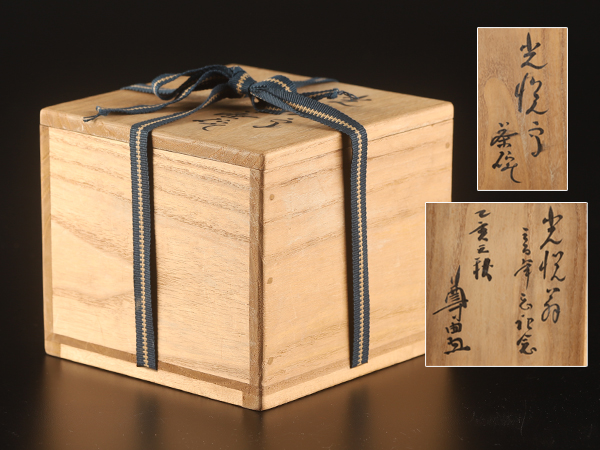 光悦写茶碗
光悦翁
三百年忌記念
乙亥之秋
尊由